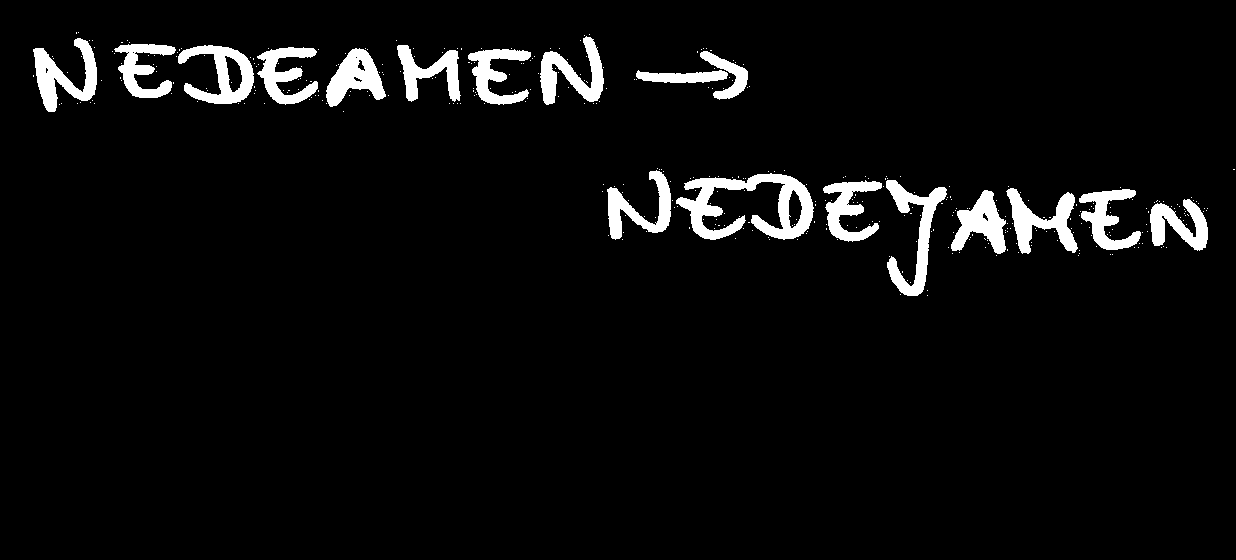 NEDEAMEN →
NEDEYAMEN